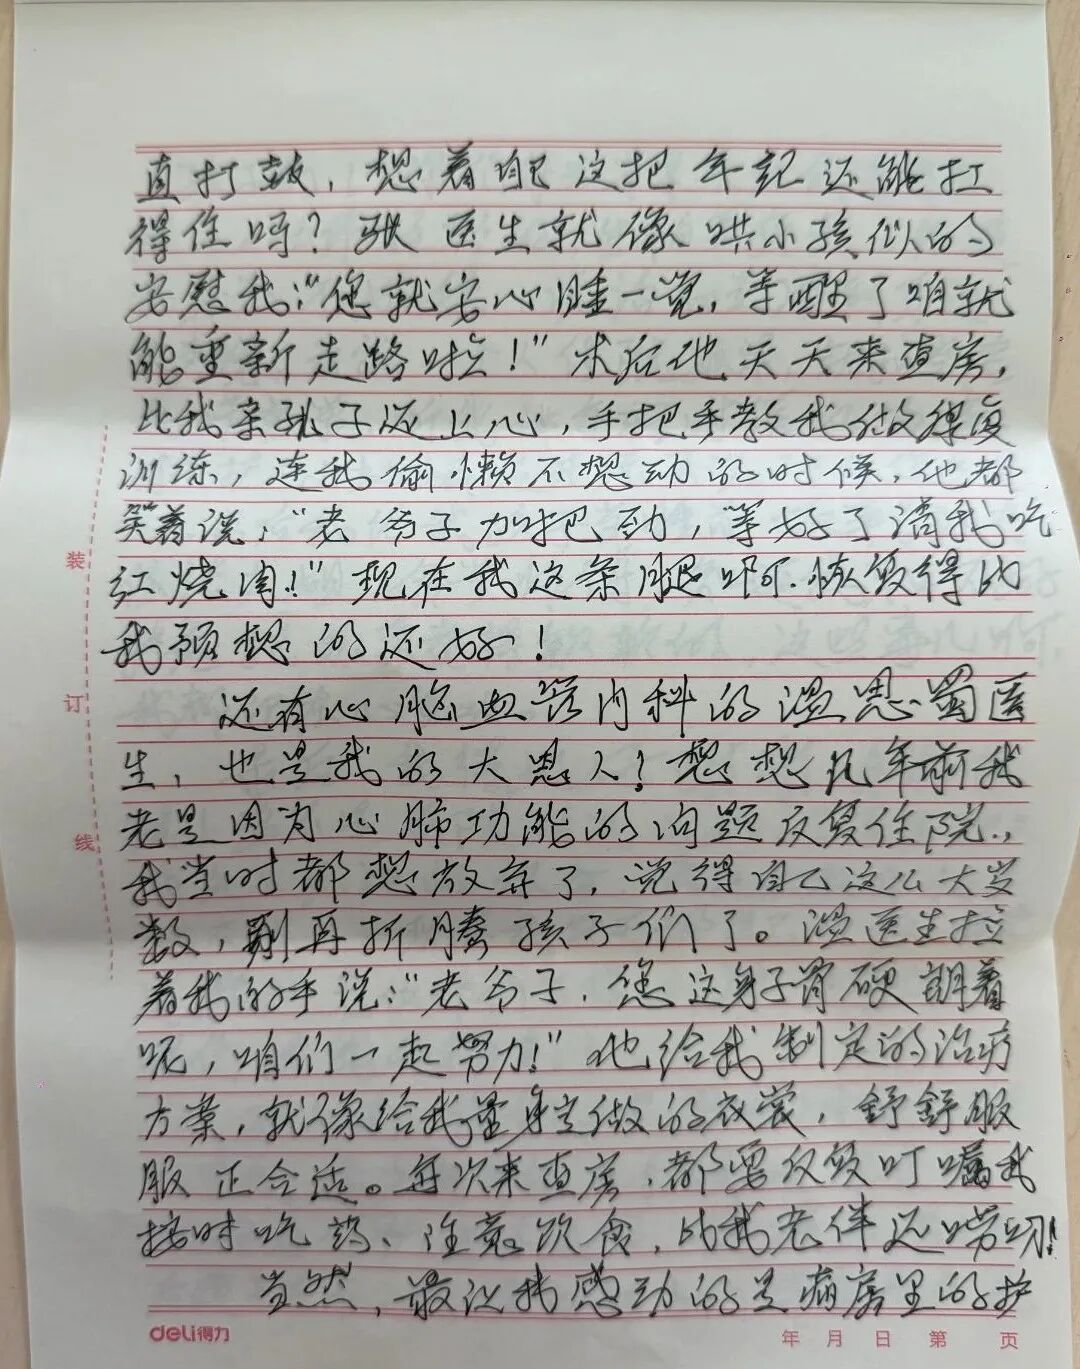 直打鼓，想着自己这把年记还能扛
得住吗？张医生就像哄小孩似的
安慰我："您就安心睡一觉，等醒了咱就
能重新走路啦！"术后他天天来查房，
比我亲孙子还上心，手把手教我做康复
训练，连我偷懒不想动的时候，他都
笑着说："老爷子加把劲，等好了请我吃
红烧肉！"现在我这条腿啊，恢复得比
我预想的还好！
还有心脑血管内科的温思蜀医
生，也是我的大恩人！想想几年前我
老是因为心肺功能的问题反复住院，
我当时都想放弃了，觉得自己这么大岁
数，别再折腾孩子们了。温医生拉
着我的手说："老爷子，您这身子骨硬朗着
呢，咱们一起努力！"他给我制定的治疗
方案，就像给我量身定做的衣裳，舒舒服
服正合适。每次来查房，都要反复叮嘱我
按时吃药、注意饮食，比我老伴还唠叨！
当然，最让我感动的是病房里的护
装
订
线
deli得力
年 月 日 第 页